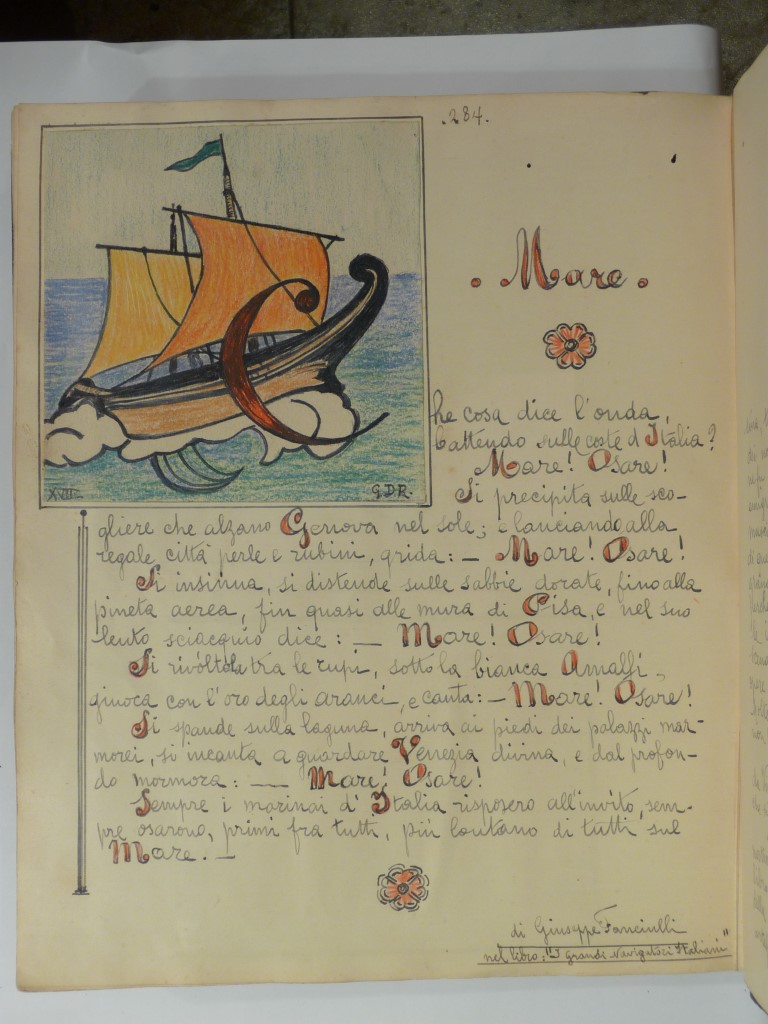 .284.
. Mare .
Che cosa dice l'onda,
battendo sulle coste d'Italia?
Mare! Osare!
Si precipita sulle sco-
gliere che alzano Genova nel sole; e lanciando alla
regale città perle e rubini, grida: — Mare! Osare!
Si insinua, si distende sulle sabbie dorate, fino alla
pineta aerea, fin quasi alle mura di Pisa, e nel suo
lento sciacquio dice: — Mare! Osare!
Si rivòltola tra le rupi, sotto la bianca Amalfi,
giuoca con l'oro degli aranci, e canta: — Mare! Osare!
Si spande sulla laguna, arriva ai piedi dei palazzi mar-
morei, si incanta a guardare Venezia divina, e dal profon-
do mormora: — Mare! Osare!
Sempre i marinai d'Italia risposero all'invito, sem-
pre osarono, primi fra tutti, più lontano di tutti sul
Mare. —
XVII
G.D.R.
di Giuseppe Fanciulli
nel libro: "I Grandi Navigatori Italiani"